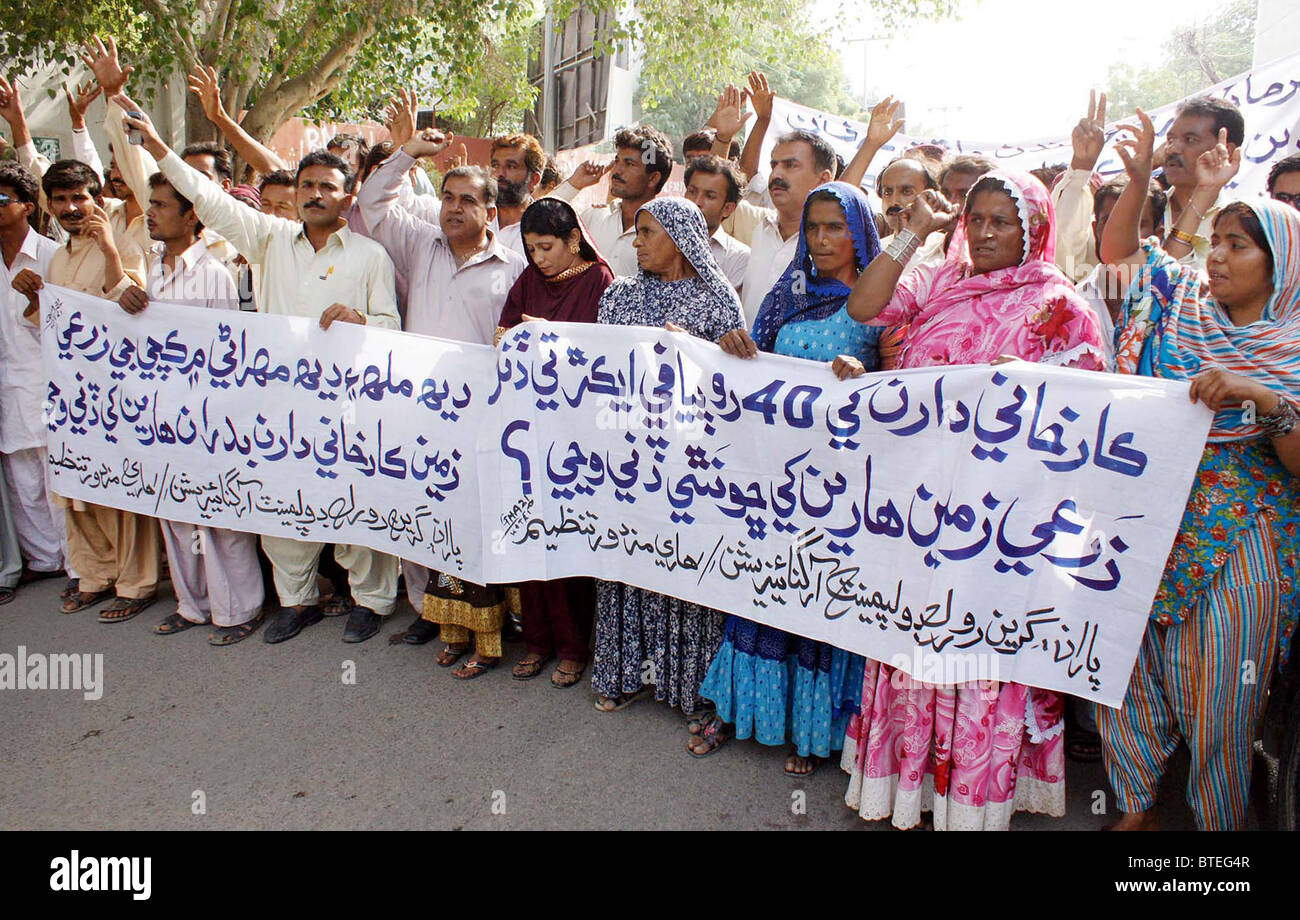 ديھ ملھ ۽ ديھ مھراڻي ۾ ڪڇي جي زرعي
زمين ڪارخاني دارن بدران هارين کي ڏني وڃي
پاران، گرين رورل ڊولپمينٽ آرگنائيزيشن // هاري مزدور تنظيم
ڪارخاني دارن کي 40 روپيا في ايڪڙ تي ڏنل
زرعي زمين هارين کي ڇو نٿي ڏني وڃي ؟
پاران، گرين رورل ڊولپمينٽ آرگنائيزيشن // هاري مزدور تنظيم
alamy
Image ID: BTEG4R
www.alamy.com